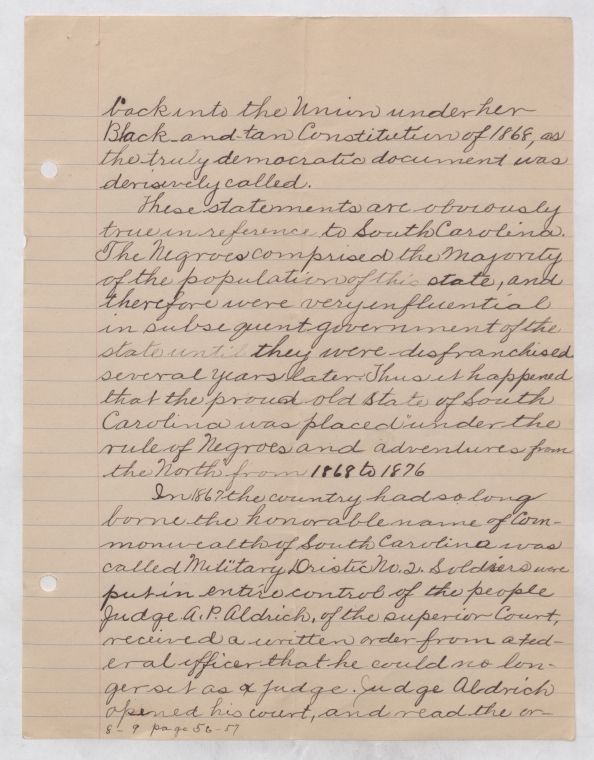 back into the Union under her
Black-and-tan Constitution of 1868, as
the truly democratic document was
derisively called.
These statements are obviously
true in reference to South Carolina.
The Negroes comprised the majority
of the population of this state, and
therefore were very influential
in subsequent government of the
state until they were disfranchised
several years later. Thus it happened
that the proud old state of South
Carolina was placed "under the
rule of Negroes and adventures from
the North" from 1868 to 1876
In 1867 the country had so long
borne the honorable name of Com-
monwealth of South Carolina was
called Military Dristic No. 2. Soldsers were
put in entire control of the people
Judge A. P. Aldrich, of the superior Court,
received a written order from a Fed-
eral officer that he could no lon-
ger set as a judge. Judge Aldrich
opened his court, and read the or-
8-9 page 56-57